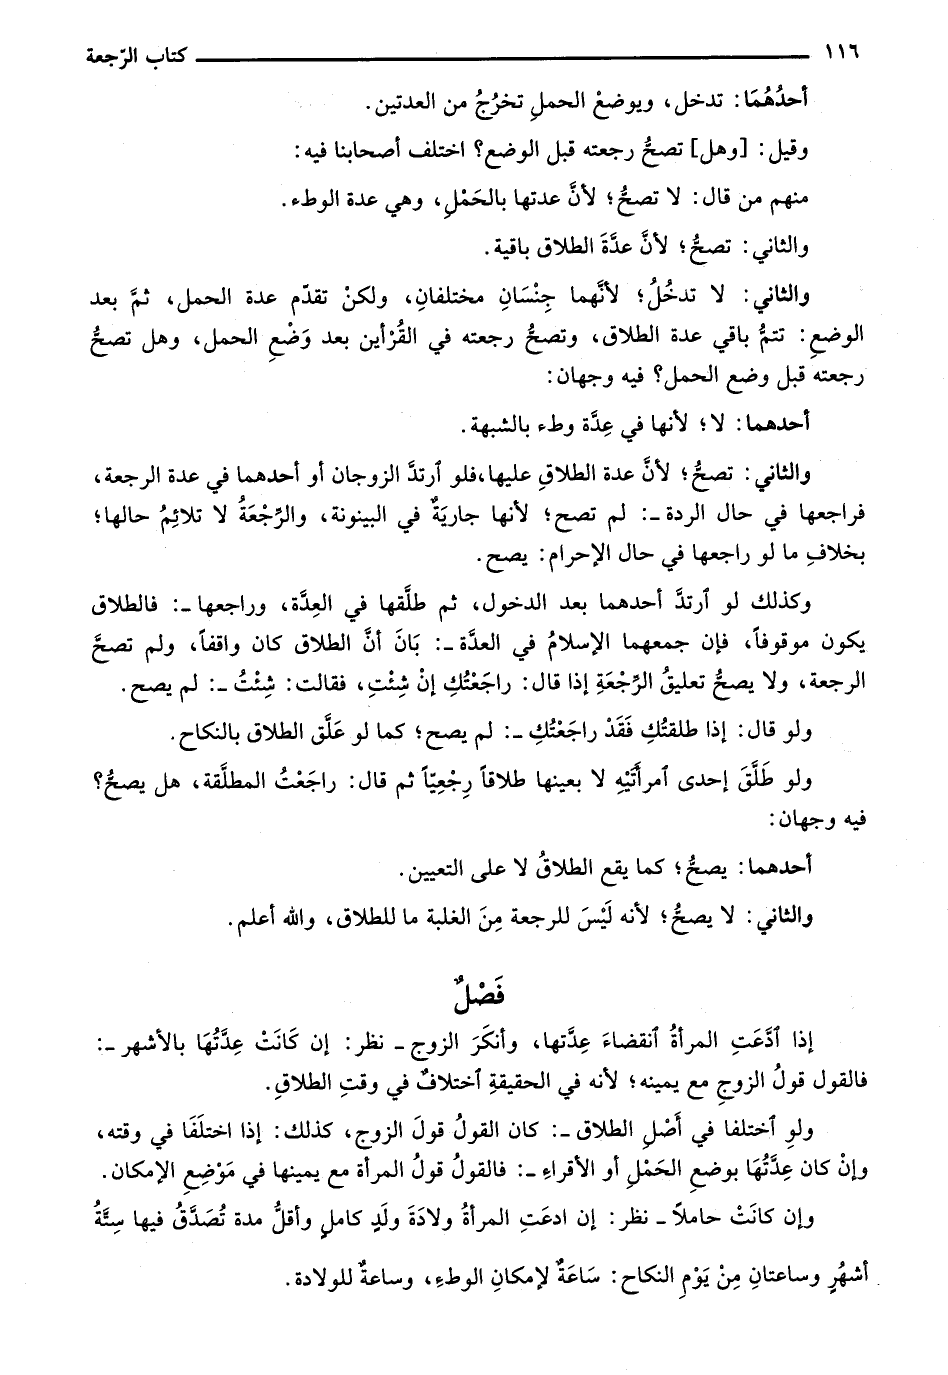 ١١٦ كتاب الرّجعة
أحدُهُمَا: تدخل، وبوضعْ الحملِ تخرُجُ من العدتين.
وقيل: [وهل] تصحُّ رجعته قبل الوضع؟ اختلف أصحابنا فيه:
منهم من قال: لا تصحُّ؛ لأنَّ عدتها بالحَمْلِ، وهي عدة الوطء.
والثاني: تصحُّ؛ لأنَّ عدَّةَ الطلاق باقية.
والثاني: لا تدخُلُ؛ لأنَّهما جِنْسَانِ مختلفانِ، ولكنْ تقدّم عدة الحمل، ثمَّ بعد
الوضعِ: تتمُّ باقي عدة الطلاق، وتصحُّ رجعته في القُرْأين بعد وَضْعِ الحمل، وهل تصحُّ
رجعته قبل وضع الحمل؟ فيه وجهان:
أحدهما: لا؛ لأنها في عِدَّة وطء بالشبهة.
والثاني: تصحُّ؛ لأنَّ عدة الطلاقِ عليها،فلو ٱرتدَّ الزوجان أو أحدهما في عدة الرجعة،
فراجعها في حال الردة ـ: لم تصح؛ لأنها جاريَةٌ في البينونة، والرَّجْعَةُ لا تلائِمُ حالها؛
بخلافِ ما لو راجعها في حال الإحرام: يصح.
وكذلك لو ٱرتدَّ أحدهما بعد الدخول، ثم طلَّقها في العِدَّة، وراجعها ـ: فالطلاق
يكون موقوفاً، فإن جمعهما الإسلامُ في العدَّة ـ: بَانَ أنَّ الطلاق كان واقفاً، ولم تصحَّ
الرجعة، ولا يصحُّ تعليقُ الرَّجْعَةِ إذا قال: راجَعْتُكِ إنْ شِئْتِ، فقالت: شِئْتُ ـ: لم يصح.
ولو قال: إذا طلقتُكِ فَقَدْ راجَعْتُكِ ـ: لم يصح؛ كما لو عَلَّق الطلاق بالنكاح.
ولو طَلَّقَ إحدى ٱمرأَتَيْهِ لا بعينها طلاقاً رِجْعِيّاً ثم قال: راجَعْتُ المطلَّقة، هل يصحُّ؟
فيه وجهان:
أحدهما: يصحُّ؛ كما يقع الطلاقُ لا على التعيين.
والثاني: لا يصحُّ؛ لأنه لَيْسَ للرجعة مِنَ الغلبة ما للطلاق، والله أعلم.
فَصْلٌ
إذا ٱدَّعَتِ المرأةُ ٱنقضاءَ عِدَّتها، وأنكَرَ الزوج ـ نظر: إن كَانَتْ عِدَّتُهَا بالأشهر ـ:
فالقول قولُ الزوجِ مع يمينه؛ لأنه في الحقيقةِ ٱختلافٌ في وقتِ الطلاقِ.
ولوِ ٱختلفا في أَصْلِ الطلاق ـ: كان القولُ قولَ الزوج، كذلك: إذا اختلَفَا في وقته،
وإنْ كان عِدَّتُهَا بوضعِ الحَمْلِ أو الأقراءِ ـ: فالقولُ قولُ المرأة مع يمينها في مَوْضِعِ الإمكان.
وإن كانَتْ حاملاً ـ نظر: إن ادعَتِ المرأةُ ولادَةَ ولَدٍ كاملٍ وأقلُّ مدة تُصَدَّقُ فيها سِتَّةُ
أشهُرٍ وساعتانِ مِنْ يَوْمِ النكاح: سَاعَةٌ لإمكانِ الوطءِ، وساعةٌ للولادة.